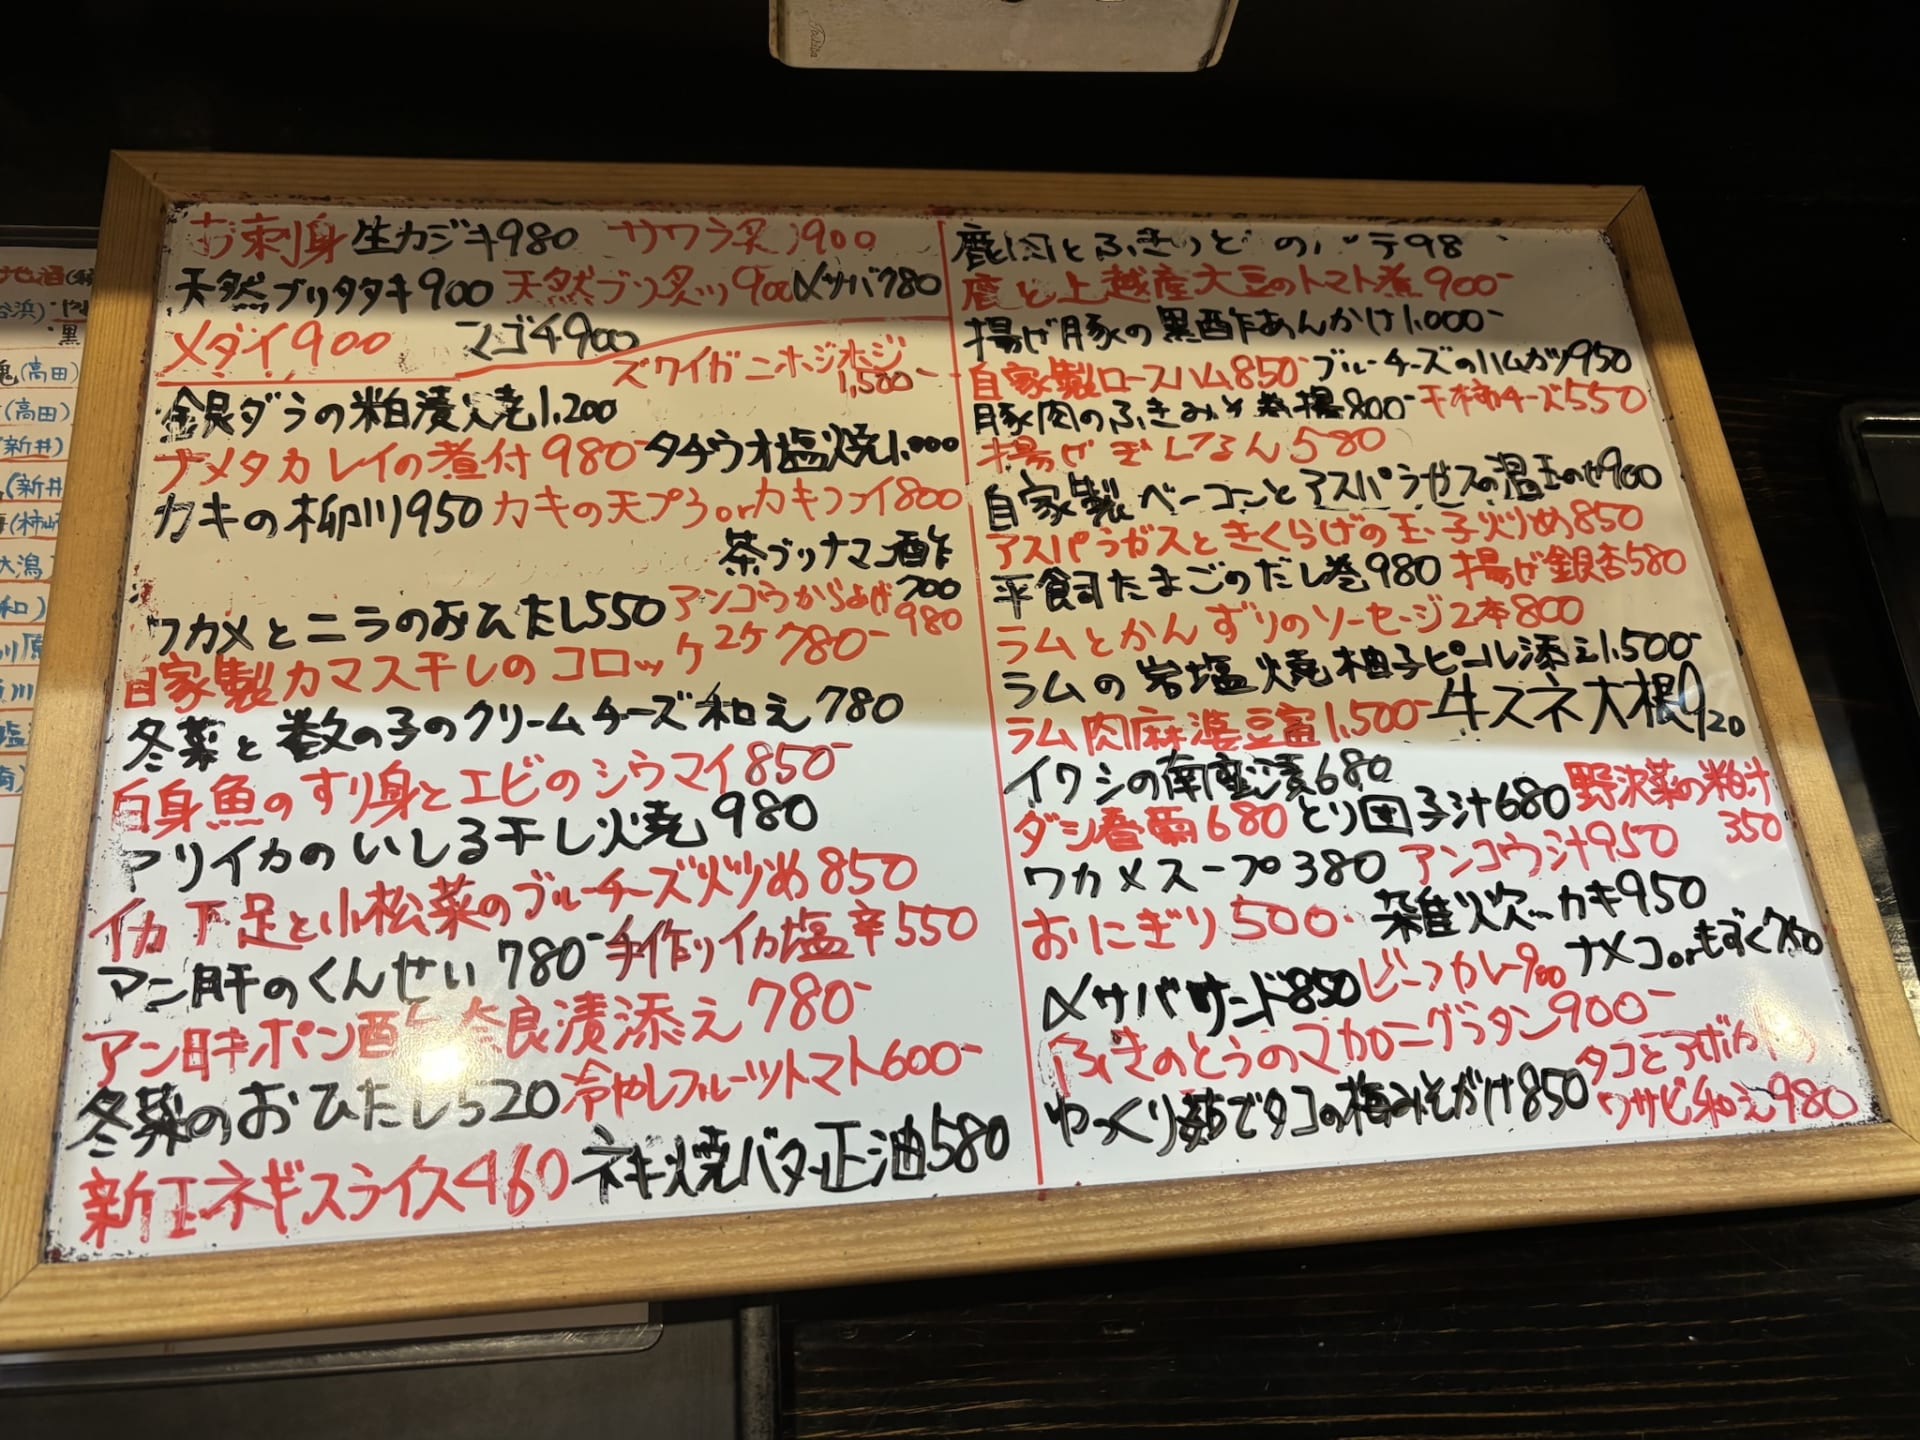 お刺身 生カジキ980 サワラ炙り900
天然ブリタタキ900 天然ブリ炙り900 〆サバ780
メダイ900 マゴチ900
ズワイガニホジホジ
1,500-
銀ダラの粕漬焼1,200
ナメタカレイの煮付980- タチウオ塩焼1,000
カキの柳川950 カキの天プラorカキフライ800
茶ブリナマコ酢
700
ワカメとニラのおひたし550 アンコウからあげ
980
自家製カマス干しのコロッケ2ケ780-
冬菜と数の子のクリームチーズ和え780
白身魚のすり身とエビのシウマイ850-
アオリイカのいしる干し焼980
イカ下足と小松菜のブルーチーズ炒め850
アン肝のくんせい780- 手作りイカ塩辛550
アン肝ポン酢 奈良漬添え780-
冬菜のおひたし520 冷やしフルーツトマト600-
新玉ネギスライス460 ネギ焼バター正油580
鹿肉とふきのとうのパテ98
鹿と上越産大豆のトマト煮900-
揚げ豚の黒酢あんかけ1,000-
自家製ロースハム850- ブルーチーズのハムカツ950
豚肉のふきみそ巻揚800- 干柿チーズ550
揚げぎんなん580
自家製ベーコンとアスパラガスの温玉のせ900
アスパラガスときくらげの玉子炒め850
平飼たまごのだし巻980 揚げ銀杏580
ラムとかんずりのソーセージ2本800
ラムの岩塩焼柚子ピール添え1,500-
ラム肉麻婆豆富1,500- 牛スネ大根920
イワシの南蛮漬680
ダシ春菊680 とり団子汁680 野沢菜の粕汁
350
ワカメスープ380 アンコウ汁950
おにぎり500- 雑炊 カキ950
〆サバサンド850 ビーフカレー900 ナメコorもずく750
ふきのとうのマカロニグラタン900-
ゆっくり茹でタコの梅みそがけ850 タコとアボカドの
ワサビ和え980
(高田)
(高田)
(新井)
(新井